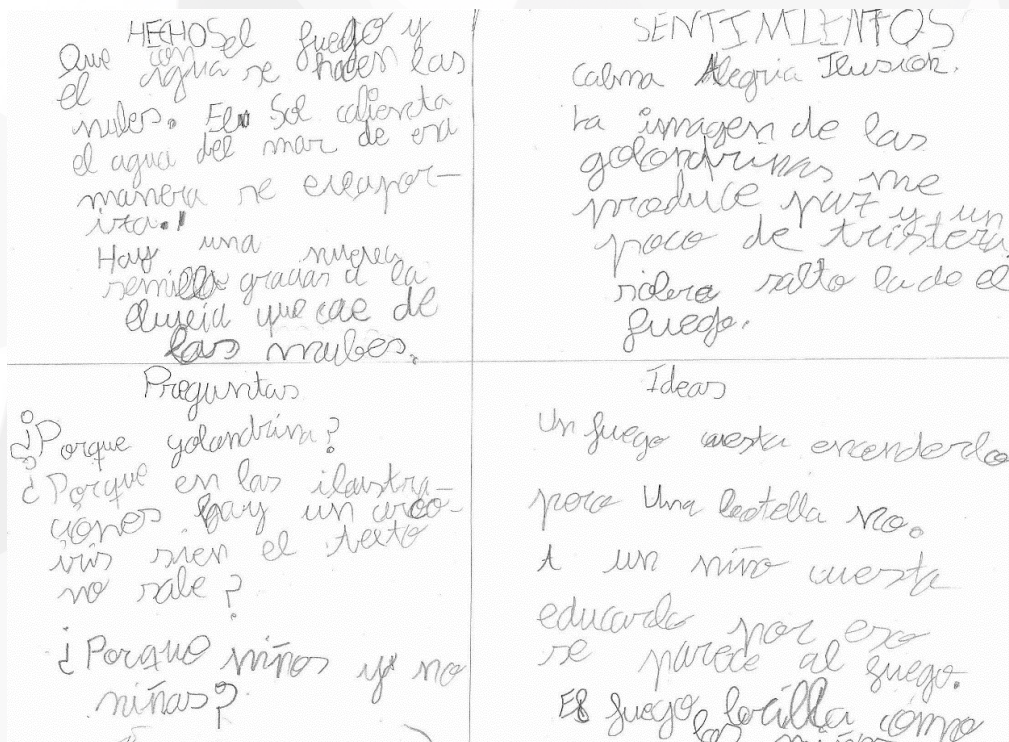 HECHOS
Que con el fuego y
el agua se hacen las
nubes. El Sol calienta
el agua del mar de esa
manera se evapor-
iza.
Hay una nueva
semilla gracias a la
lluvia que cae de
las nubes.
SENTIMIENTOS
Calma Alegria Ilusion.
La imagen de las
golondrinas me
produce paz y un
poco de tristeza
salto la de el
fuego.
Preguntas
¿Porque golondrina?
¿Porque en las ilustra-
ciones hay un arco-
iris sien el texto
no sale?
¿Porque niños y no
niñas?
Ideas
Un fuego cuesta encenderlo
pero Una botella no.
A un niño cuesta
educarlo por eso
se parece al fuego.
El fuego brilla como
los niños